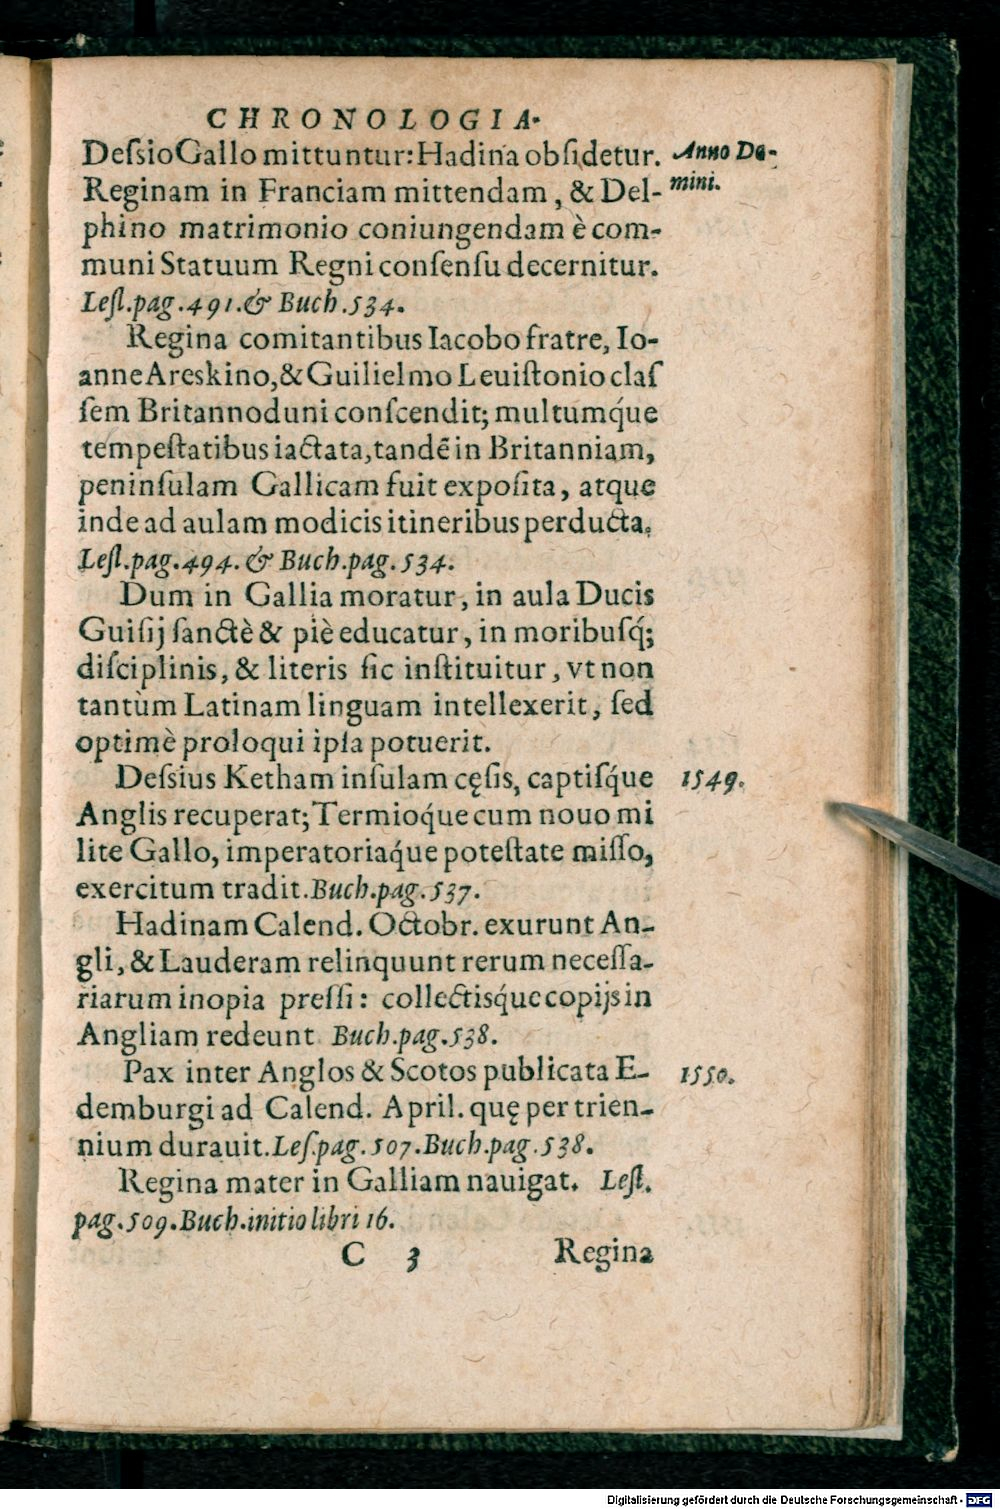 CHRONOLOGIA.
Deſsio Gallo mittuntur: Hadina obſidetur.
Anno Do-
mini.
Reginam in Franciam mittendam, & Del-
phino matrimonio coniungendam è com-
muni Statuum Regni conſenſu decernitur.
Leſl. pag. 491. & Buch. 534.
Regina comitantibus Iacobo fratre, Io-
anne Areskino, & Guilielmo Leuiſtonio claſ
ſem Britannoduni conſcendit; multumq́ue
tempeſtatibus iactata, tandē in Britanniam,
peninſulam Gallicam fuit expoſita, atque
inde ad aulam modicis itineribus perducta.
Leſl. pag. 494. & Buch. pag. 534.
Dum in Gallia moratur, in aula Ducis
Guiſij ſanctè & piè educatur, in moribuſq́;
diſciplinis, & literis ſic inſtituitur, vt non
tantùm Latinam linguam intellexerit, ſed
optimè proloqui ipſa potuerit.
Deſsius Ketham inſulam cęſis, captiſq́ue
1549.
Anglis recuperat; Termioq́ue cum nouo mi
lite Gallo, imperatoriaq́ue poteſtate miſſo,
exercitum tradit. Buch. pag. 537.
Hadinam Calend. Octobr. exurunt An-
gli, & Lauderam relinquunt rerum neceſſa-
riarum inopia preſſi: collectiſq́ue copijs in
Angliam redeunt Buch. pag. 538.
Pax inter Anglos & Scotos publicata E-
1550.
demburgi ad Calend. April. quę per trien-
nium durauit. Leſ. pag. 507. Buch. pag. 538.
Regina mater in Galliam nauigat. Leſl.
pag. 509. Buch. initio libri 16.
C 3 Regina
Digitalisierung gefördert durch die Deutsche Forschungsgemeinschaft - DFG